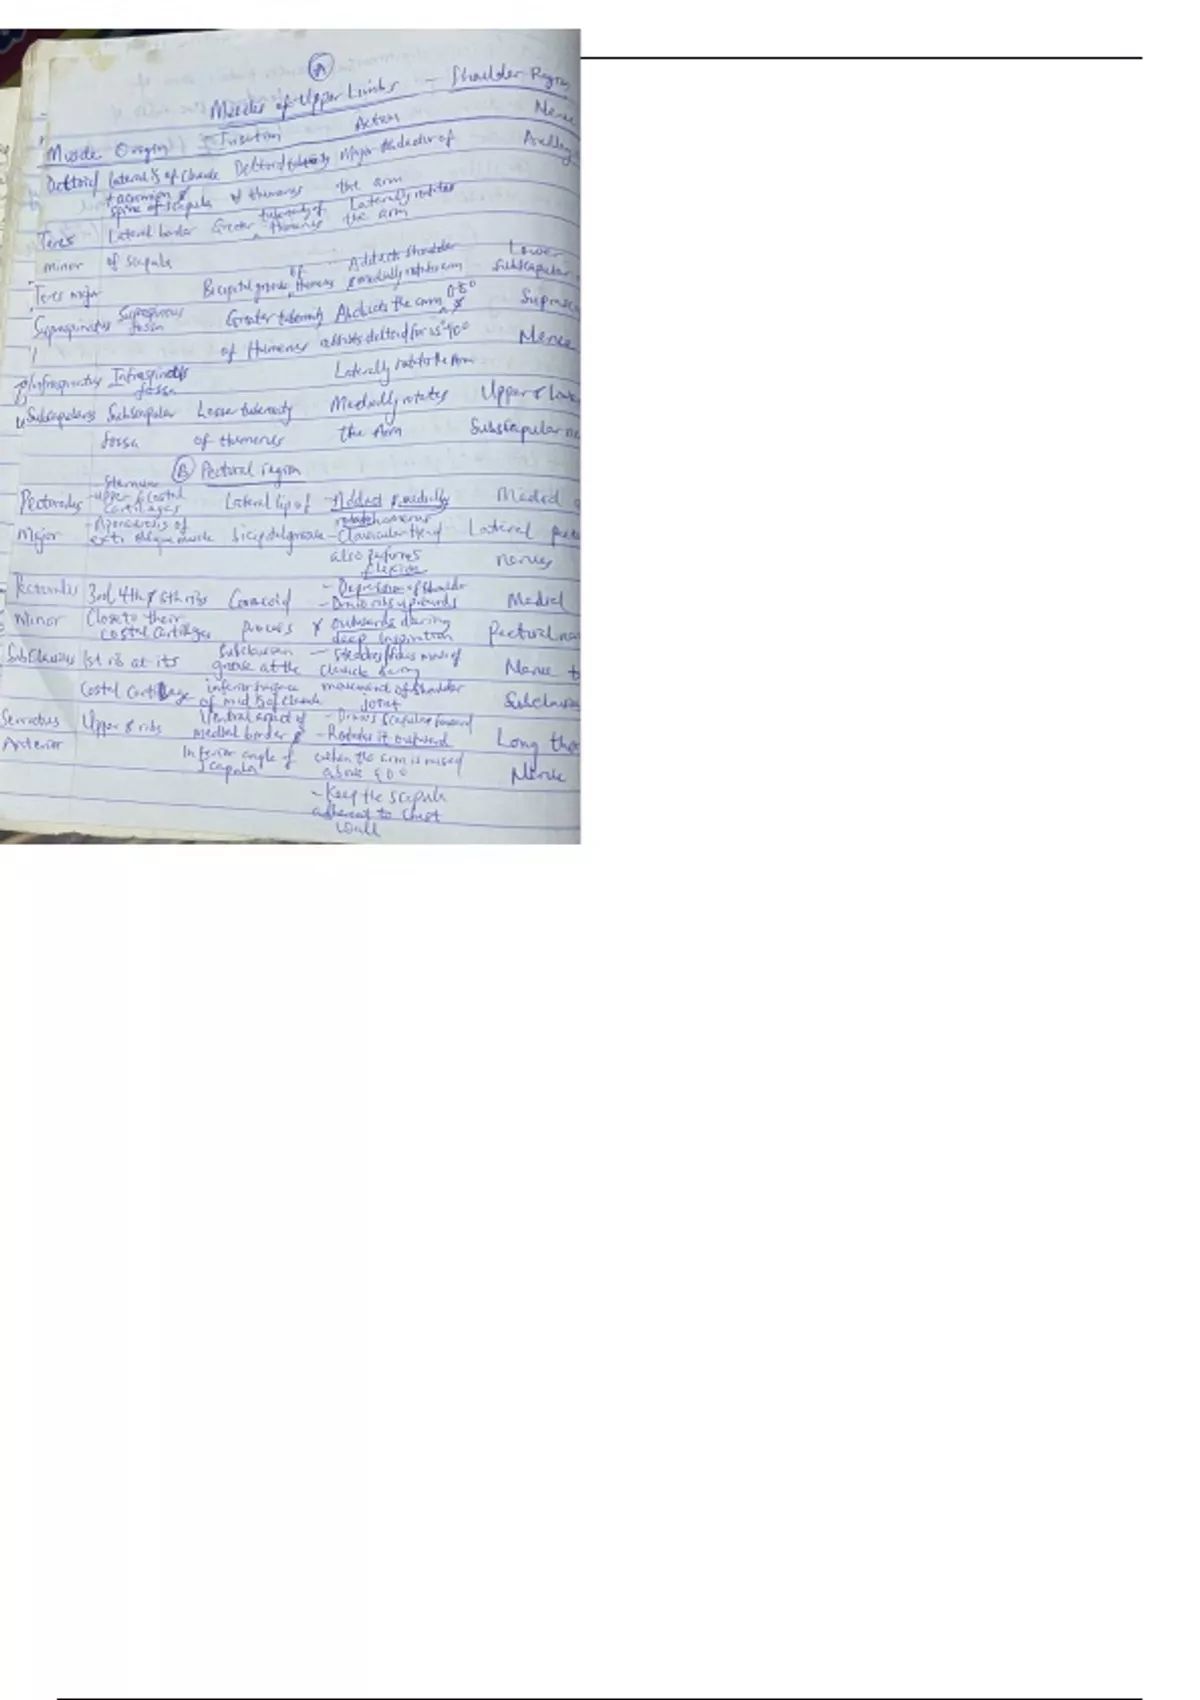 A
Muscles of Upper Limbs - Shoulder Region
Muscle Origin Insertion Action Nerve
Deltoid lateral ⅓ of clavicle Deltoid tuberosity Major Abductor of
+ acromion & spine of scapula of humerus the arm
Teres Lateral border Greater tuberosity of humerus Laterally rotates the arm
minor of scapula
Teres major Bicipital groove of humerus - Adducts shoulder & medially rotates arm Lower Subscapular
Supraspinatus Supraspinous fossa Greater tuberosity Abducts the arm
of Humerus assists deltoid for 15°-90° Nerve
Infraspinatus Infraspinatus fossa Laterally rotate the Arm
Subscapularis Subscapular Lesser tuberosity Medially rotates Upper & Lower
fossa of humerus the Arm Subscapular
B Pectoral region
Pectoralis - Sternum - upper 6 costal cartilages Lateral lip of - Adduct & medially rotate humerus
Major - Aponeurosis of ext. oblique muscle bicipital groove - Clavicular head of Lateral
also performs flexion nerves
Pectoralis 3rd, 4th & 5th ribs Coracoid - Depression of shoulder - Draw ribs upwards Medial
Minor Close to their costal cartilages process & outwards during deep inspiration
Subclavius 1st rib at its Subclavian groove at the - Steadies clavicle during Nerve
Costal Cartilage inferior surface of mid ⅓ of clavicle movement of shoulder joint
Serratus Upper 8 ribs Ventral aspect of medial border & - Draws scapula forward - Rotates it outward Long
Anterior Inferior angle of scapula when the arm is raised above 90° Nerve
- Keep the scapula
adherent to chest
wall